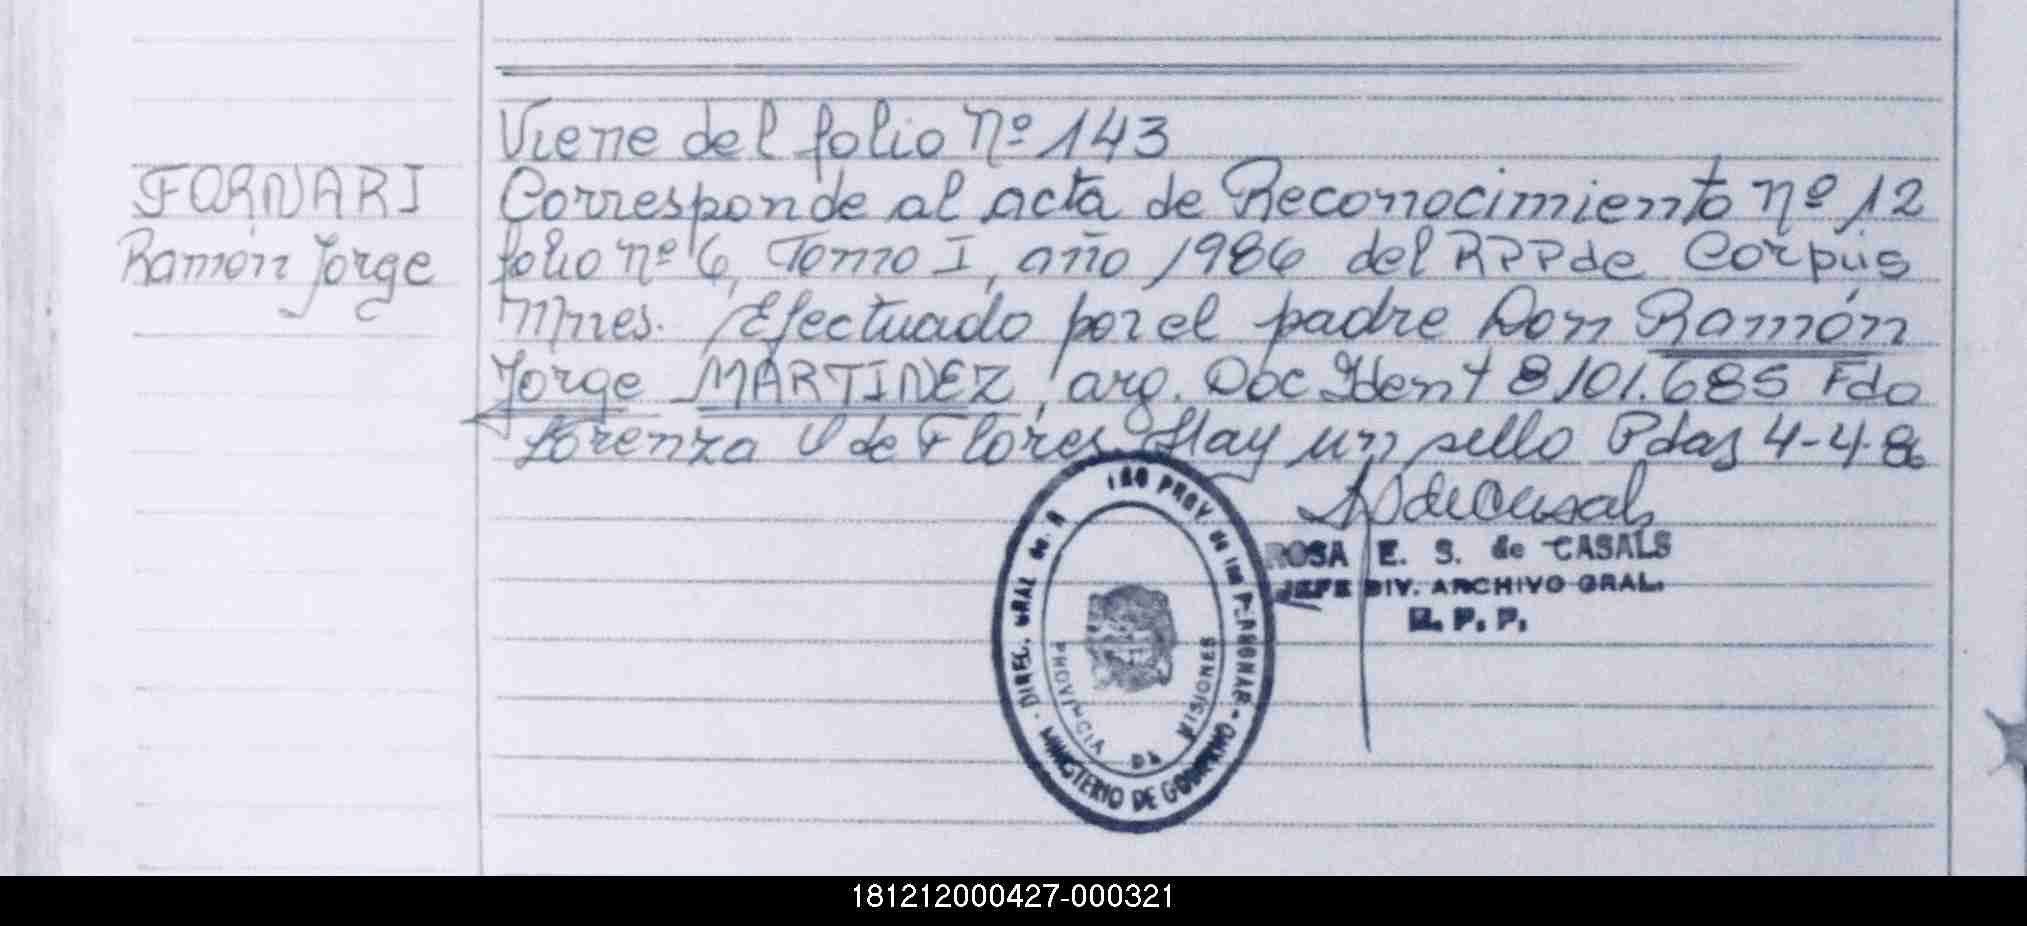 Viene del folio Nº 143
FORNARI
Ramón Jorge
Corresponde al acta de Reconocimiento nº 12
folio nº 6, Tomo I, año 1986 del RPP de Corpus
Mnes. Efectuado por el padre Don Ramón
Jorge MARTINEZ, arg. Doc Ident 8101.685 Fdo
Lorenza V de Flores Hay un sello Pdas 4-4-86
ROSA E. S. de CASALS
JEFE DIV. ARCHIVO GRAL.
R. P. P.
DIREC. GRAL de. R PROV. de las PERSONAS
PROVINCIA DE MISIONES
MINISTERIO DE GOBIERNO
181212000427-000321